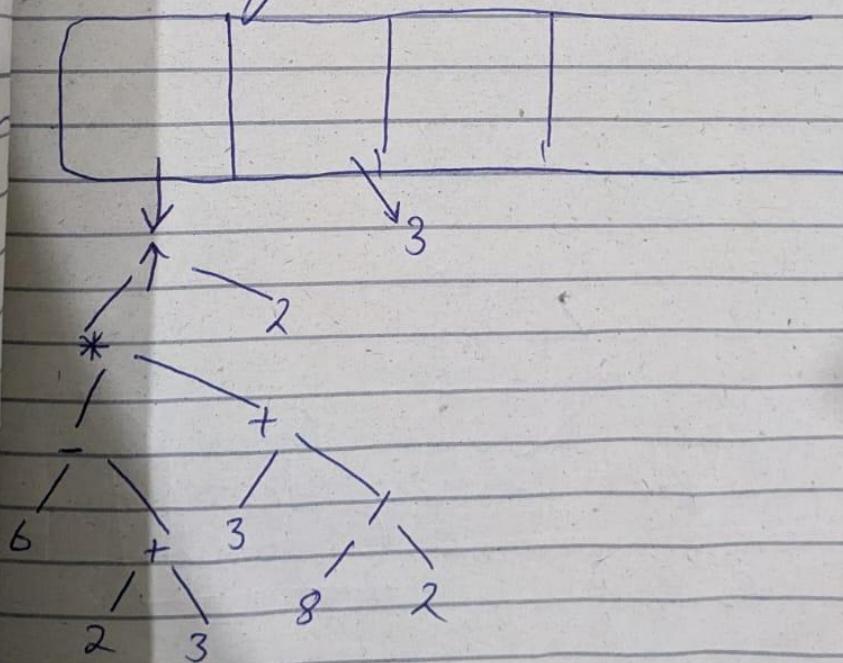 3
↑
2
*
+
-
6
3
/
+
8
2
2
3